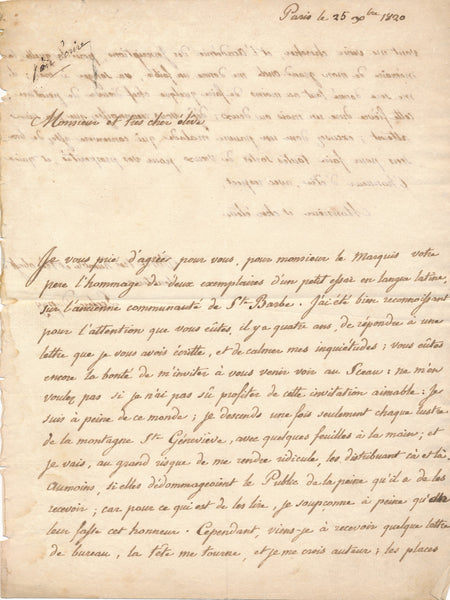 Paris le 25 xbre 1820
Monsieur et très cher éléve
Je vous prie d'agréer pour vous, pour monsieur le Marquis votre
pere l'hommage de deux exemplaires d'un petit essai en langue latine,
sur l'ancienne communauté de Ste Barbe. J'ai été bien reconnoissant
pour l'attention que vous eûtes, il y a quatre ans, de répondre à une
lettre que je vous avois écritte, et de calmer mes inquiétudes; vous eûtes
encore la bonté de m'inviter à vous venir voir au Sceau: ne m'en
voulez pas si je n'ai pas sû profiter de cette invitation aimable: Je
suis à peine de ce monde; je descends une fois seulement chaque lustre
de la montagne Ste Géneviève, avec quelques feuilles à la main; et
je vais, au grand risque de me rendre ridicule, les distribuant cà et là.
Aumoins, si elles dédommageoient le Public de la peine qu'il a de les
recevoir; car pour ce qui est de les lire, je soupconne à peine qu'
leur fasse cet honneur. Cependant, viens-je à recevoir quelque lettre
de bureau, la tête me tourne, et je me crois auteur; les places